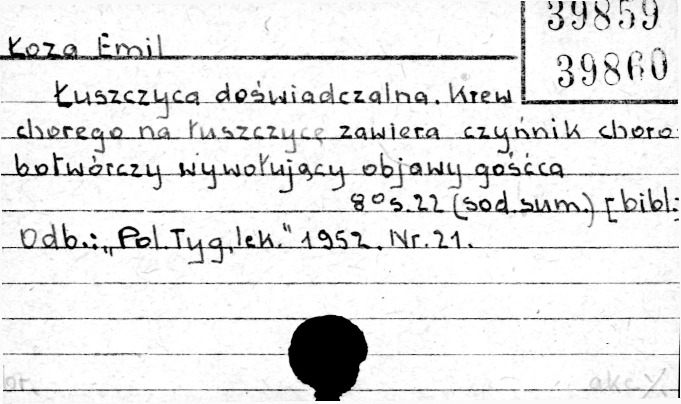 39859
39860
Łoza Emil
Łuszczyca doświadczalna. Krew
chorego na łuszczycę zawiera czynnik choro
botwórczy wywołujący objawy gośćca
8° s. 22 (sod. sum.) [bibl.;
Odb.: „Pol. Tyg. lek." 1952. Nr. 21.
akc. Y.